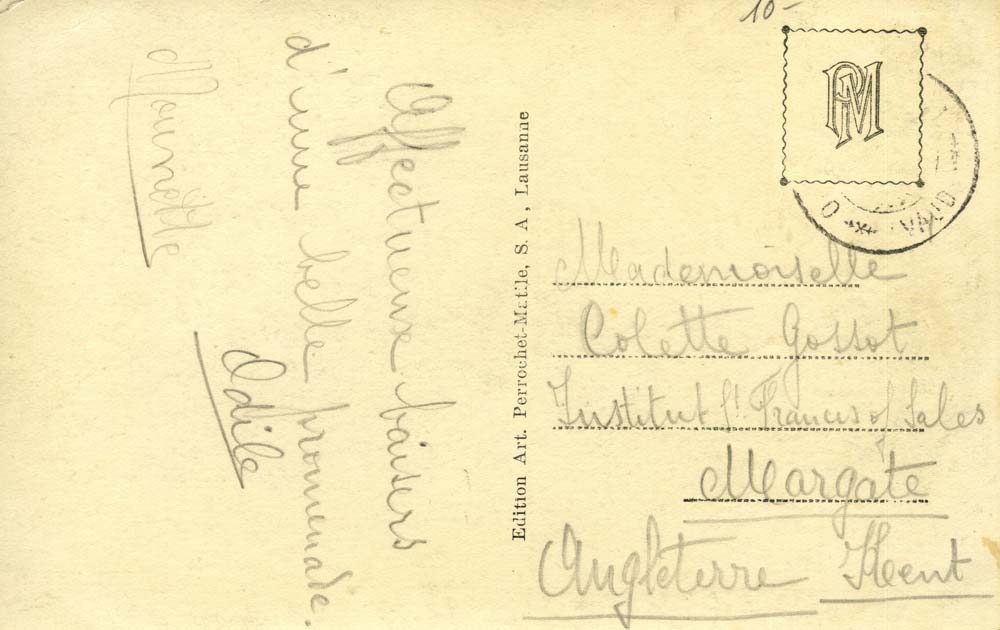 Affectueux baisers
d'une belle promenade.
Odile
10-
PM
VAUD
Edition Art. Perrochet-Matile, S. A, Lausanne
Mademoiselle
Colette Gossot
Institut St Francis of Sales
Margate
Angleterre Kent